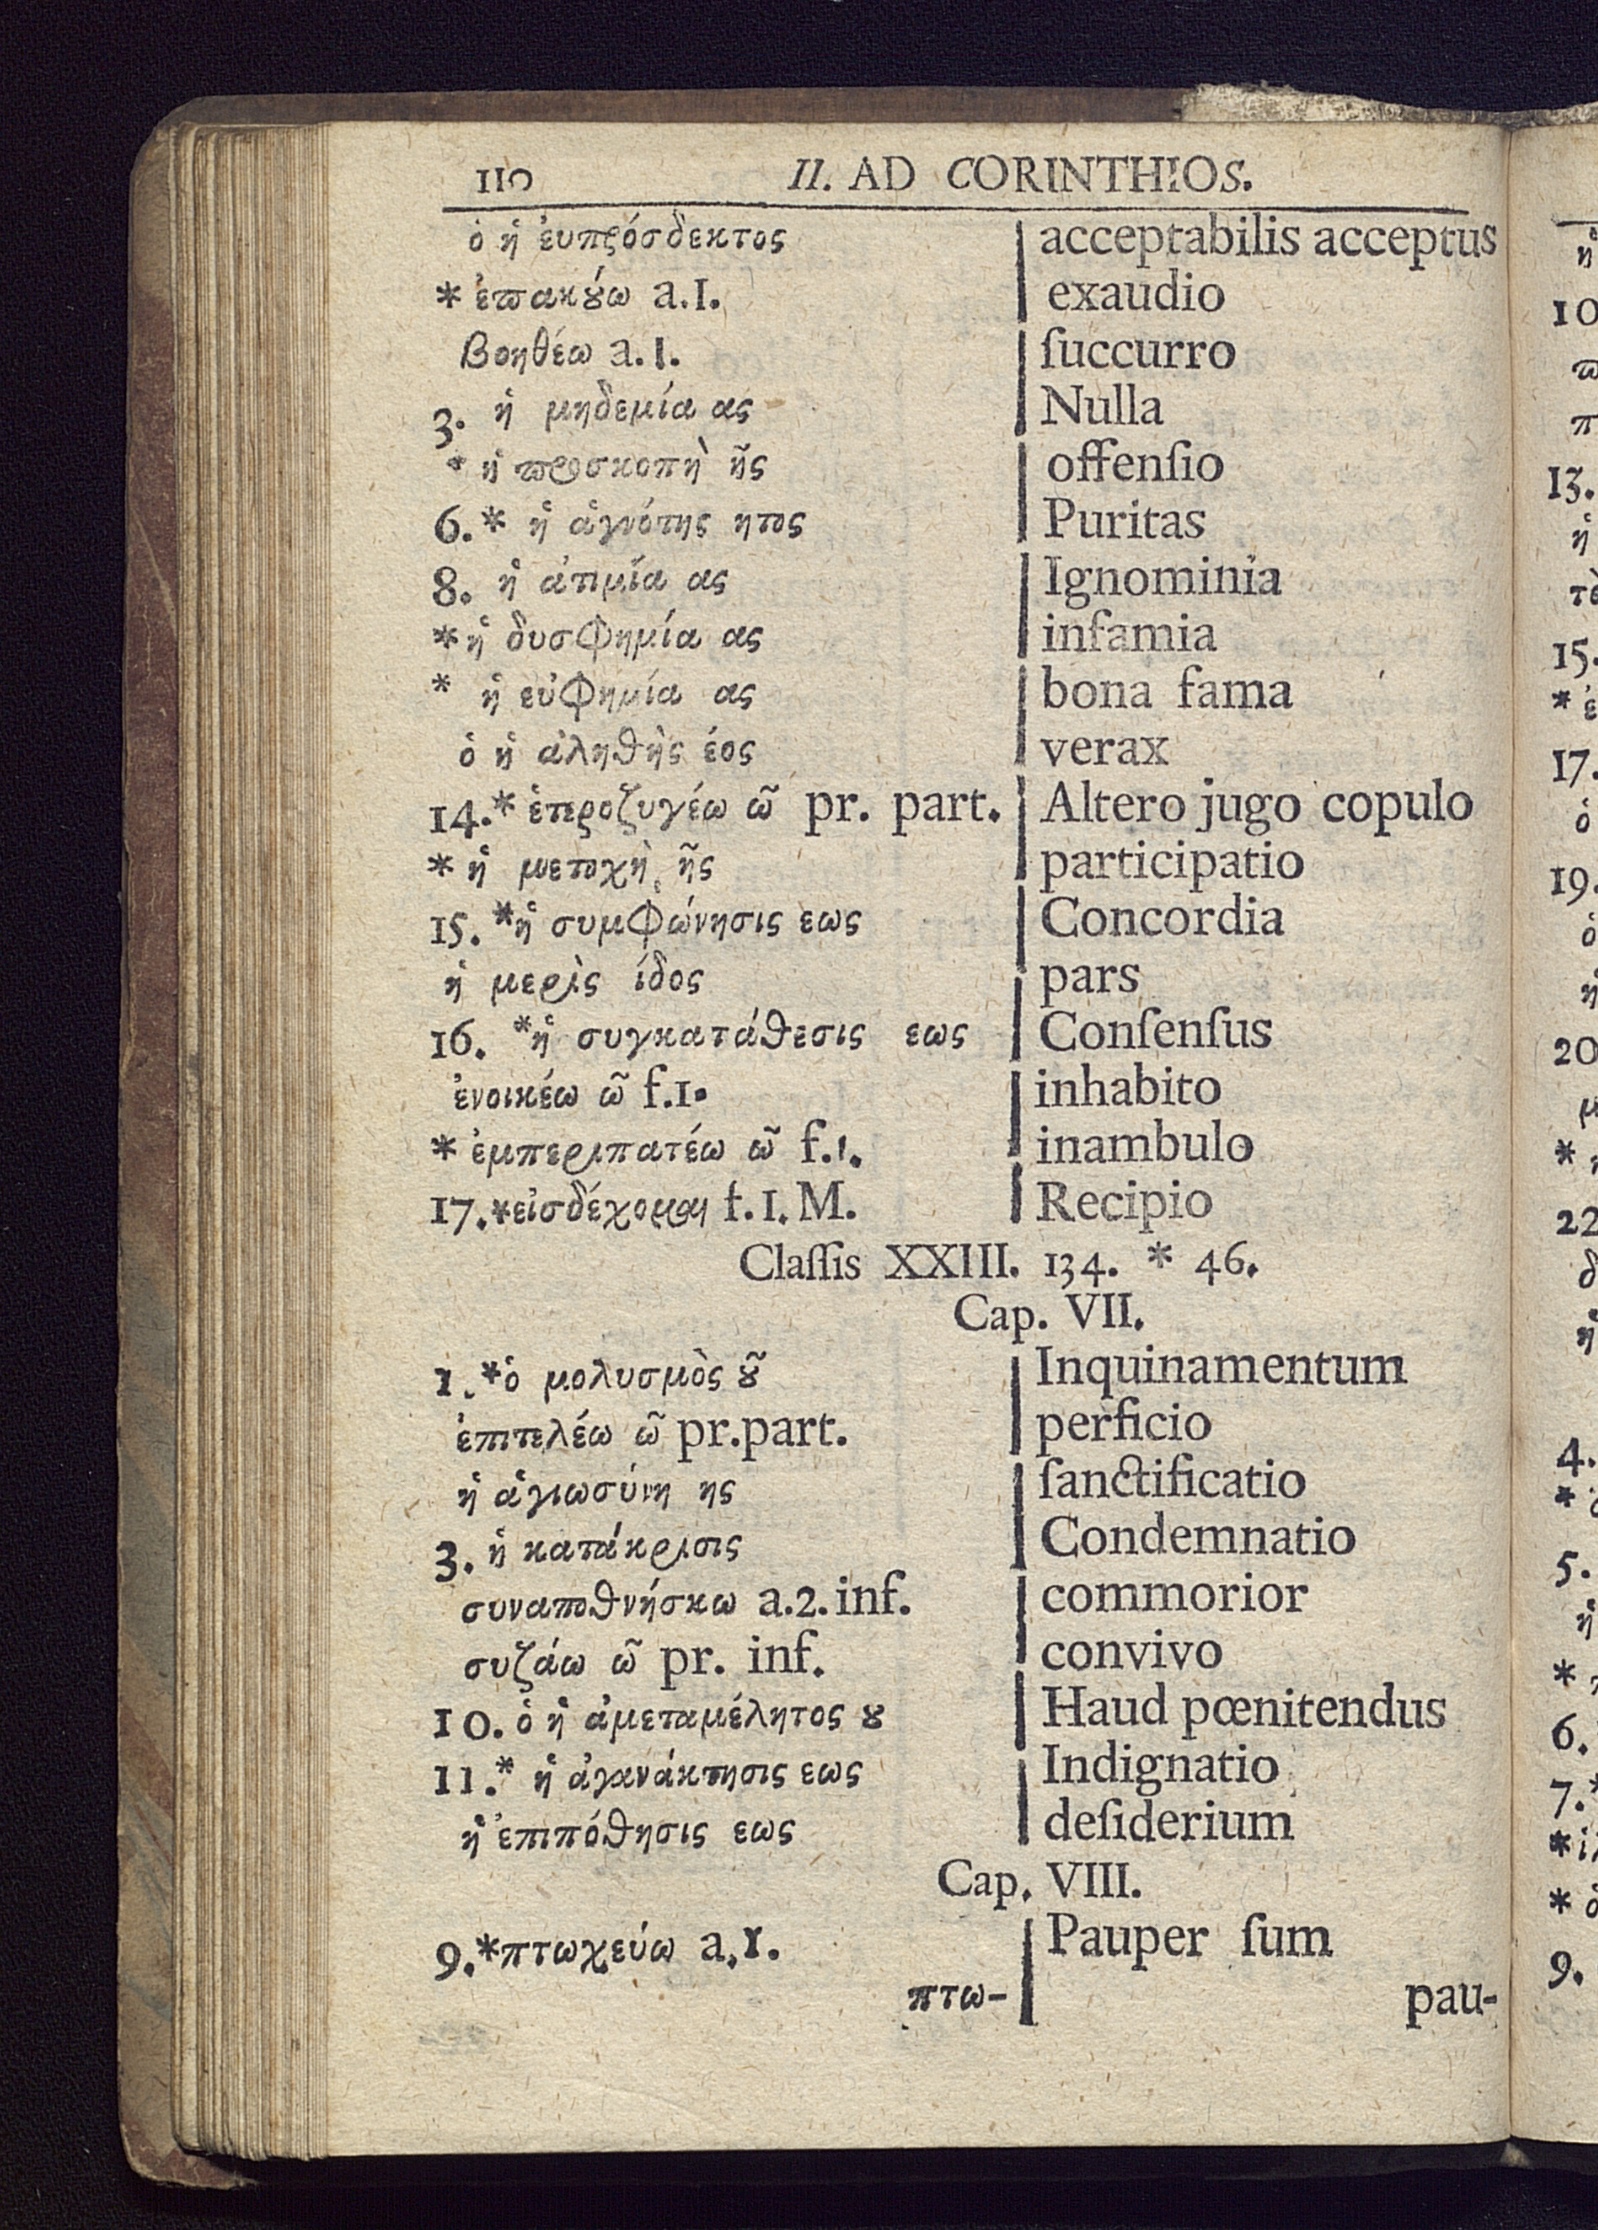 110 II. AD CORINTHIOS.
ὁ ἡ ἐυπρόσδεκτος acceptabilis acceptus
* ἐπακούω a.I. exaudio
Βοηθέω a.I. ſuccurro
3. ἡ μηδεμία ας Nulla
* ἡ προσκοπὴ ῆς offenſio
6. * ἡ ἁγνότης ητος Puritas
8. ἡ ἀτιμία ας Ignominia
* ἡ δυσφημία ας infamia
* ἡ εὐφημία ας bona fama
ὁ ἡ ἀληθὴς έος verax
14. * ἑτεροζυγέω ῶ pr. part. Altero jugo copulo
* ἡ μετοχὴ ῆς participatio
15. * ἡ συμφώνησις εως Concordia
ἡ μερὶς ίδος pars
16. * ἡ συγκατάθεσις εως Conſenſus
ἐνοικέω ῶ f.1. inhabito
* ἐμπεριπατέω ῶ f.1. inambulo
17. * εἰσδέχομαι f.I.M. Recipio
Claſſis XXIII. 134. * 46.
Cap. VII.
1. * ὁ μολυσμὸς οῦ Inquinamentum
ἐπιτελέω ῶ pr.part. perficio
ἡ ἁγιωσύνη ης ſanctificatio
3. ἡ κατάκρισις Condemnatio
συναποθνήσκω a.2. inf. commorior
συζάω ῶ pr. inf. convivo
10. ὁ ἡ ἀμεταμέλητος ου Haud pœnitendus
11. * ἡ ἀγανάκτησις εως Indignatio
ἡ ἐπιπόθησις εως deſiderium
Cap. VIII.
9. * πτωχεύω a.I. Pauper ſum
πτω- pau-
10
13.
15.
17.
19.
20
22
4.
5.
6.
7.
9.